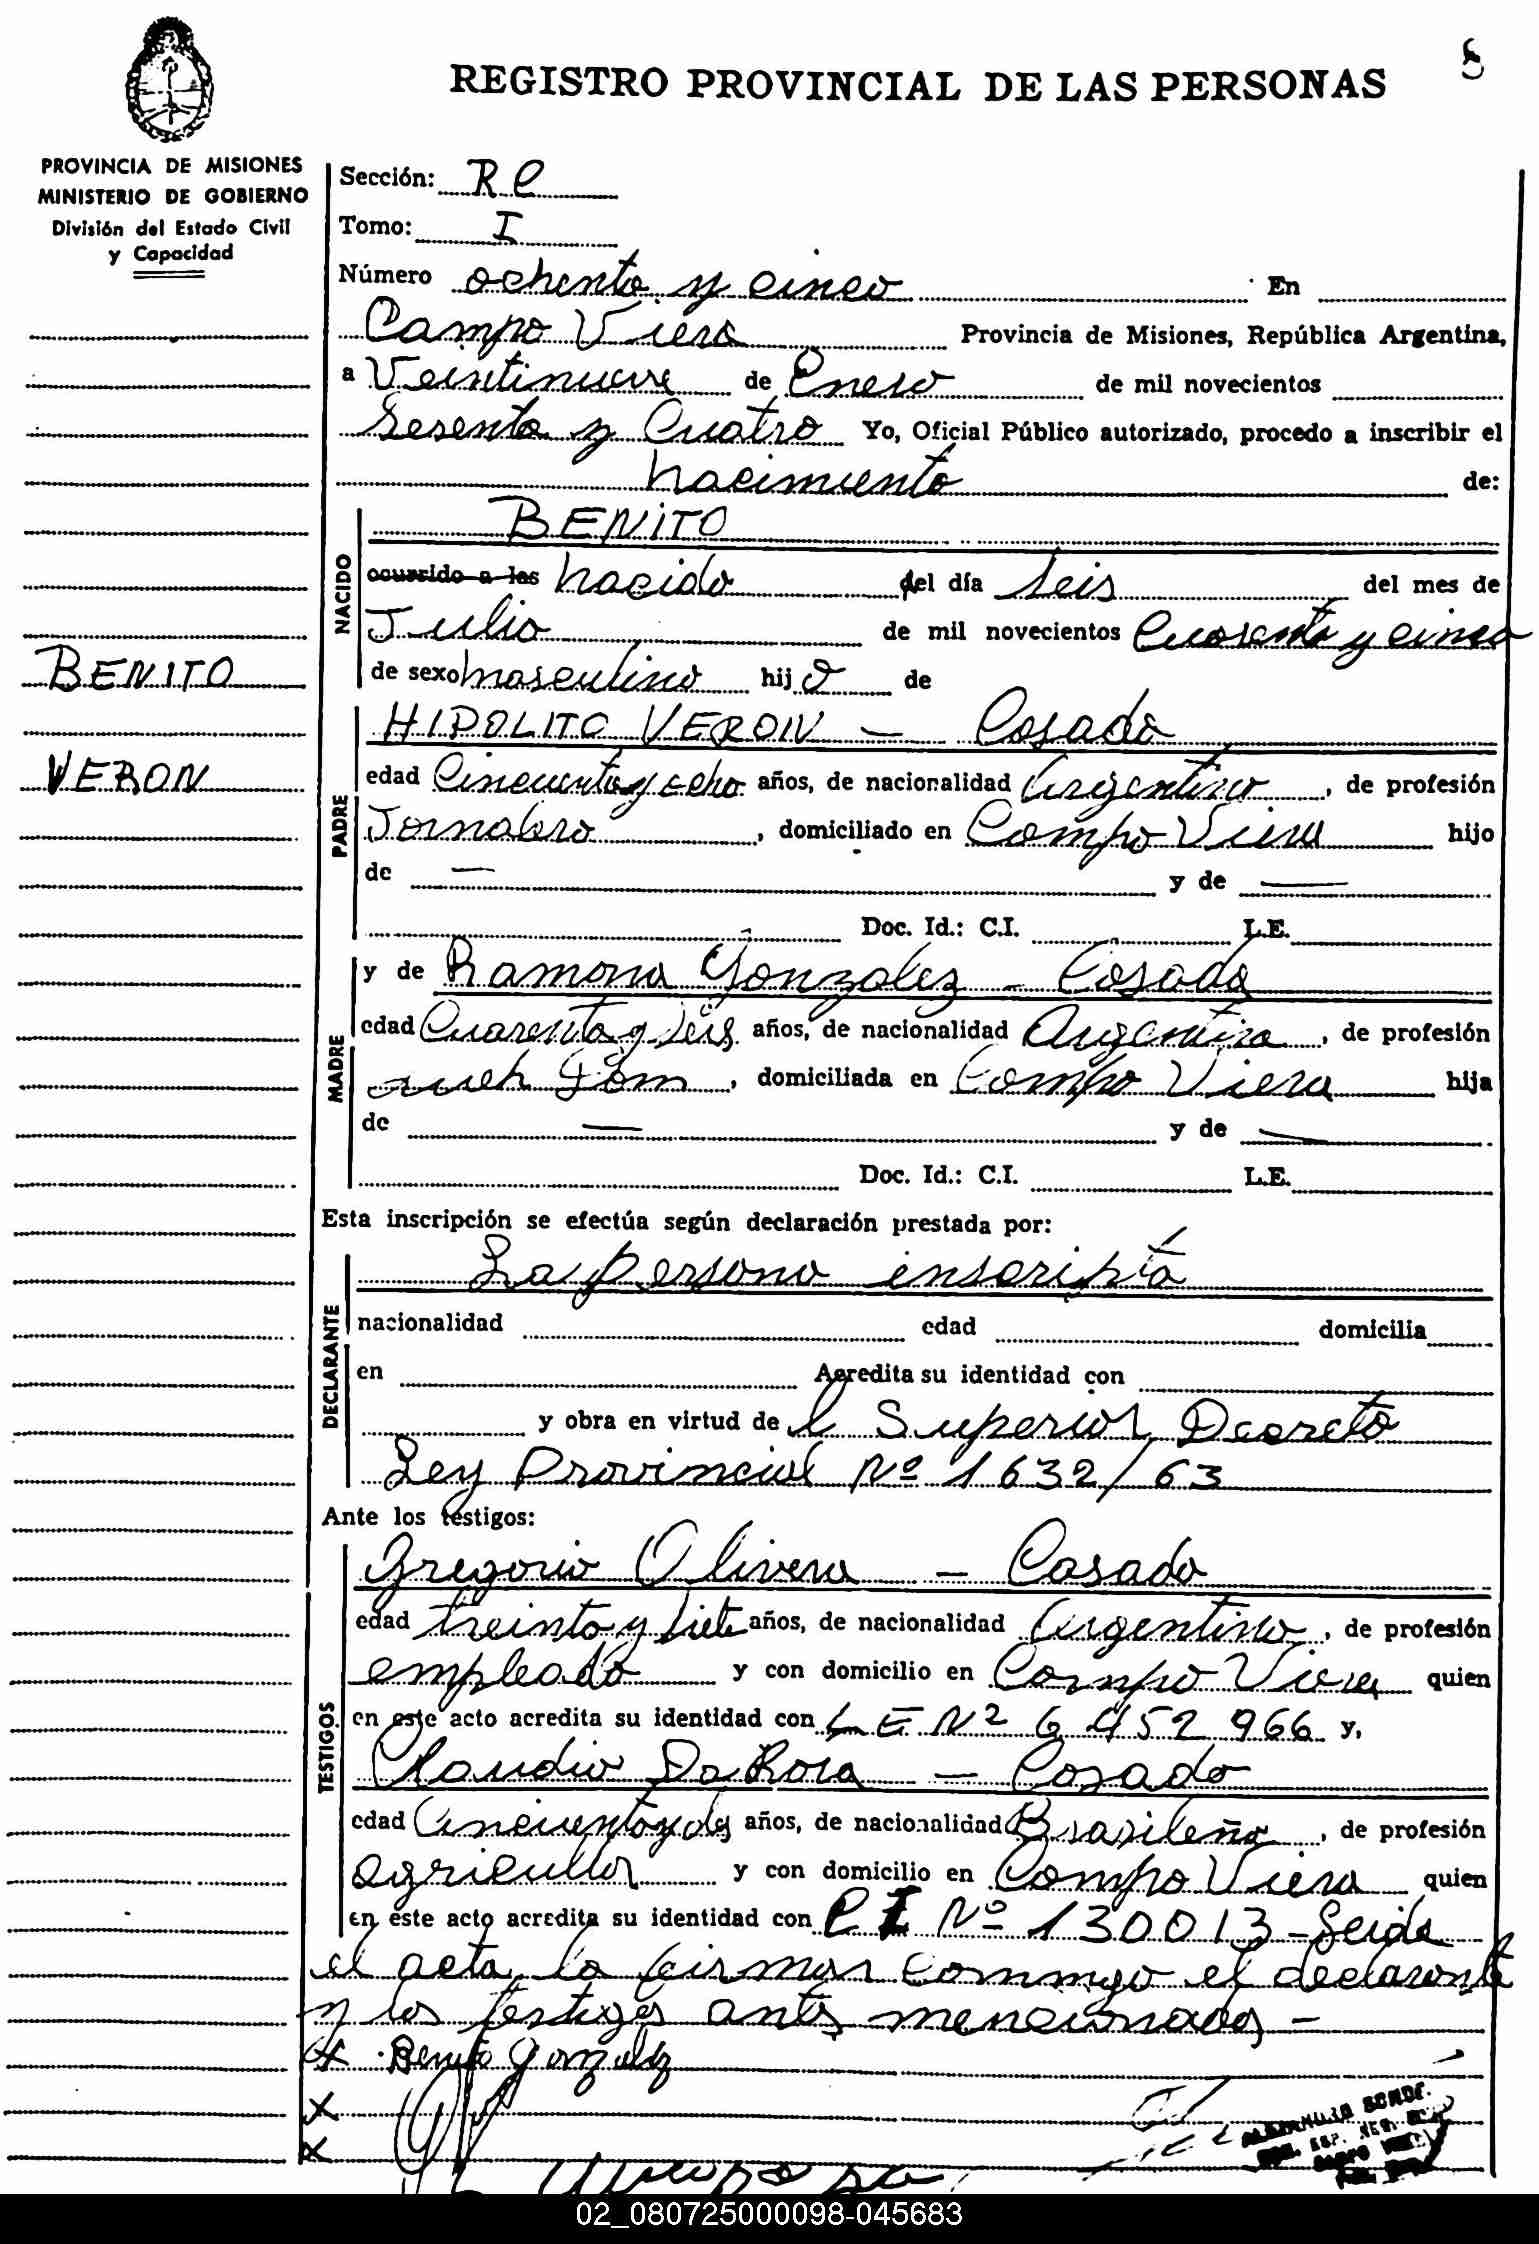 REGISTRO PROVINCIAL DE LAS PERSONAS
8
PROVINCIA DE MISIONES
MINISTERIO DE GOBIERNO
División del Estado Civil
y Capacidad
Sección: RC
Tomo: I
Número ochenta y cinco En
Campo Viera Provincia de Misiones, República Argentina,
a Veintinueve de Enero de mil novecientos
Sesenta y Cuatro Yo, Oficial Público autorizado, procedo a inscribir el
nacimiento de:
BENITO
VERON
NACIDO
BENITO
ocurrido a las nacido del día seis del mes de
Julio de mil novecientos Cuarenta y cinco
de sexo masculino hijo de
PADRE
HIPOLITO VERON - Casado
edad Cincuenta y ocho años, de nacionalidad Argentino, de profesión
Jornalero, domiciliado en Campo Viera hijo
de — y de —
Doc. Id.: C.I. L.E.
MADRE
y de Ramona Gonzalez - Casada
edad Cuarenta y Seis años, de nacionalidad Argentina, de profesión
domiciliada en Campo Viera hija
de — y de —
Doc. Id.: C.I. L.E.
Esta inscripción se efectúa según declaración prestada por:
DECLARANTE
La persona inscripta
nacionalidad edad domicilia
en Acredita su identidad con
y obra en virtud de l Superior Decreto
Ley Provincial Nº 1632/63
Ante los testigos:
TESTIGOS
Gregorio Olivera - Casado
edad treinta y siete años, de nacionalidad Argentino, de profesión
empleado y con domicilio en Campo Viera quien
en este acto acredita su identidad con LE Nº 6 452 966 y,
Claudio Da Rosa - Casado
edad Cincuenta y dos años, de nacionalidad Brasileña, de profesión
agricultor y con domicilio en Campo Viera quien
en este acto acredita su identidad con CI Nº 130013 - Leida
el acta la firman conmigo el declarante
y los testigos antes mencionados -
x Benito Gonzalez
x
x
02_080725000098-045683